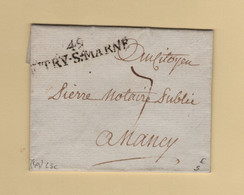 49
VITRY-S-MARNE
Au Citoyen
7
Pierre Notaire Public
a Nancy